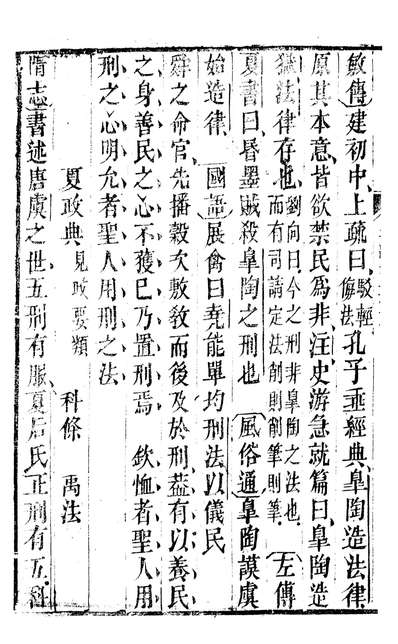 敏傳建初中上疏曰駁輕侮法孔子垂經典臯陶造法律
原其本意皆欲禁民爲非注史游急就篇曰臯陶造
獄法律存也劉向曰今之刑非臯陶之法也而有司請定法削則削筆則筆 左傳
夏書曰昬墨賊殺臯陶之刑也 風俗通臯陶謨虞
始造律 國語展禽曰堯能單均刑法以儀民
舜之命官先播穀次敷敎而後及於刑葢有以養民
之身善民之心不獲已乃置刑焉 欽恤者聖人用
刑之心明允者聖人用刑之法
夏政典見政要類 科條 禹法
隋志書述唐虞之世五刑有服夏后氏正刑有五科